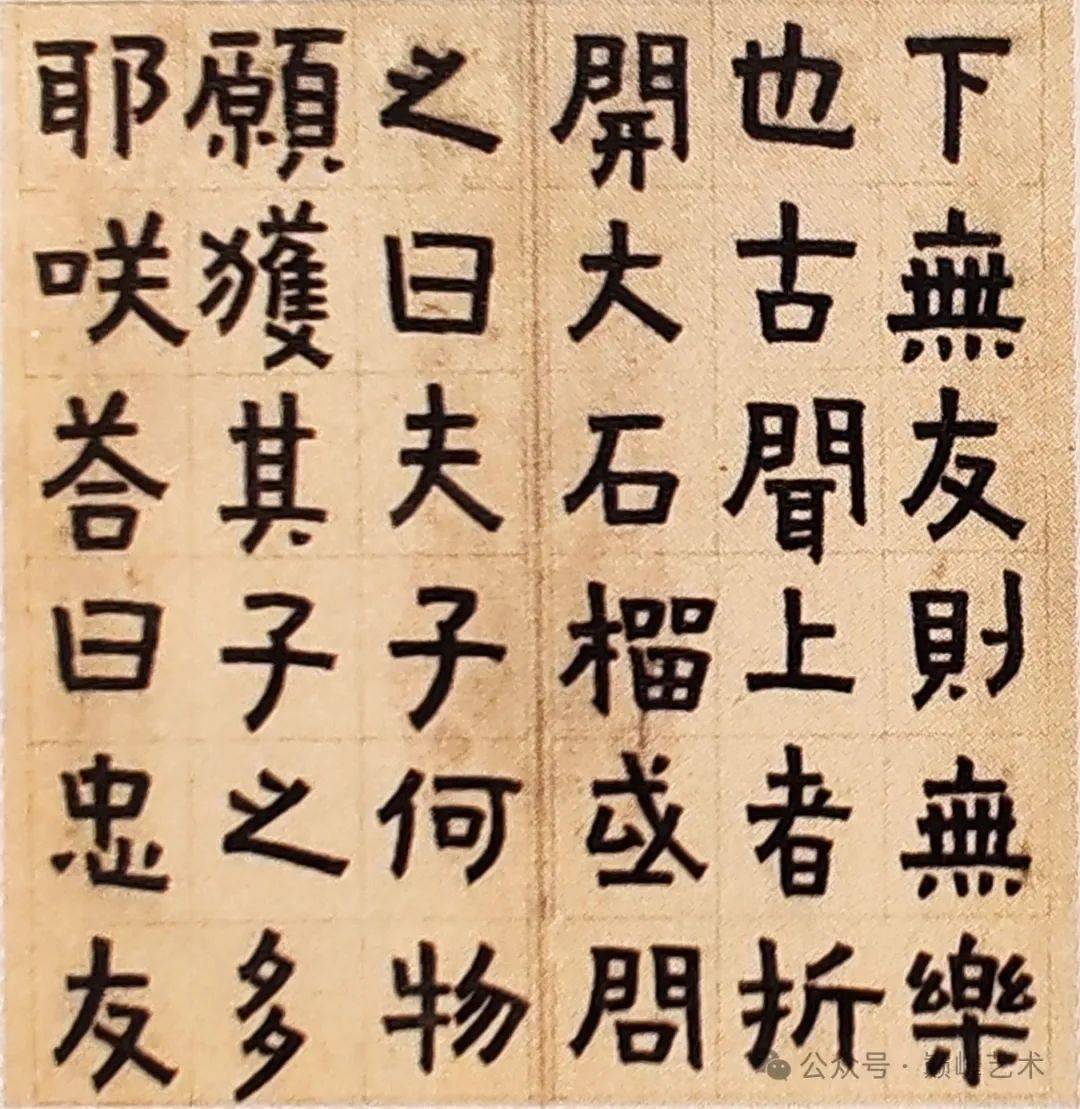 下無友則無樂
也古聞上者折
開大石榴或問
之曰夫子何物
願獲其子之多
耶咲荅曰忠友
公众号·巅峰艺术